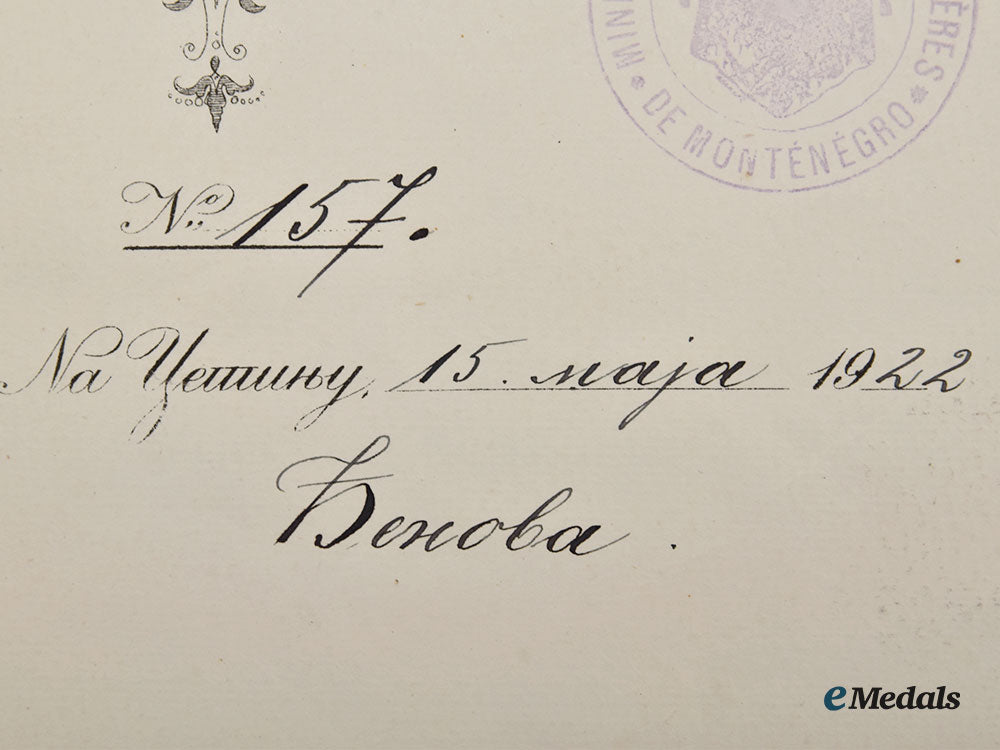 MIN
ÉRES * DE MONTÉNÉGRO *
No. 157.
На Цетињу, 15. маја 1922
Ђенова.
eMedals